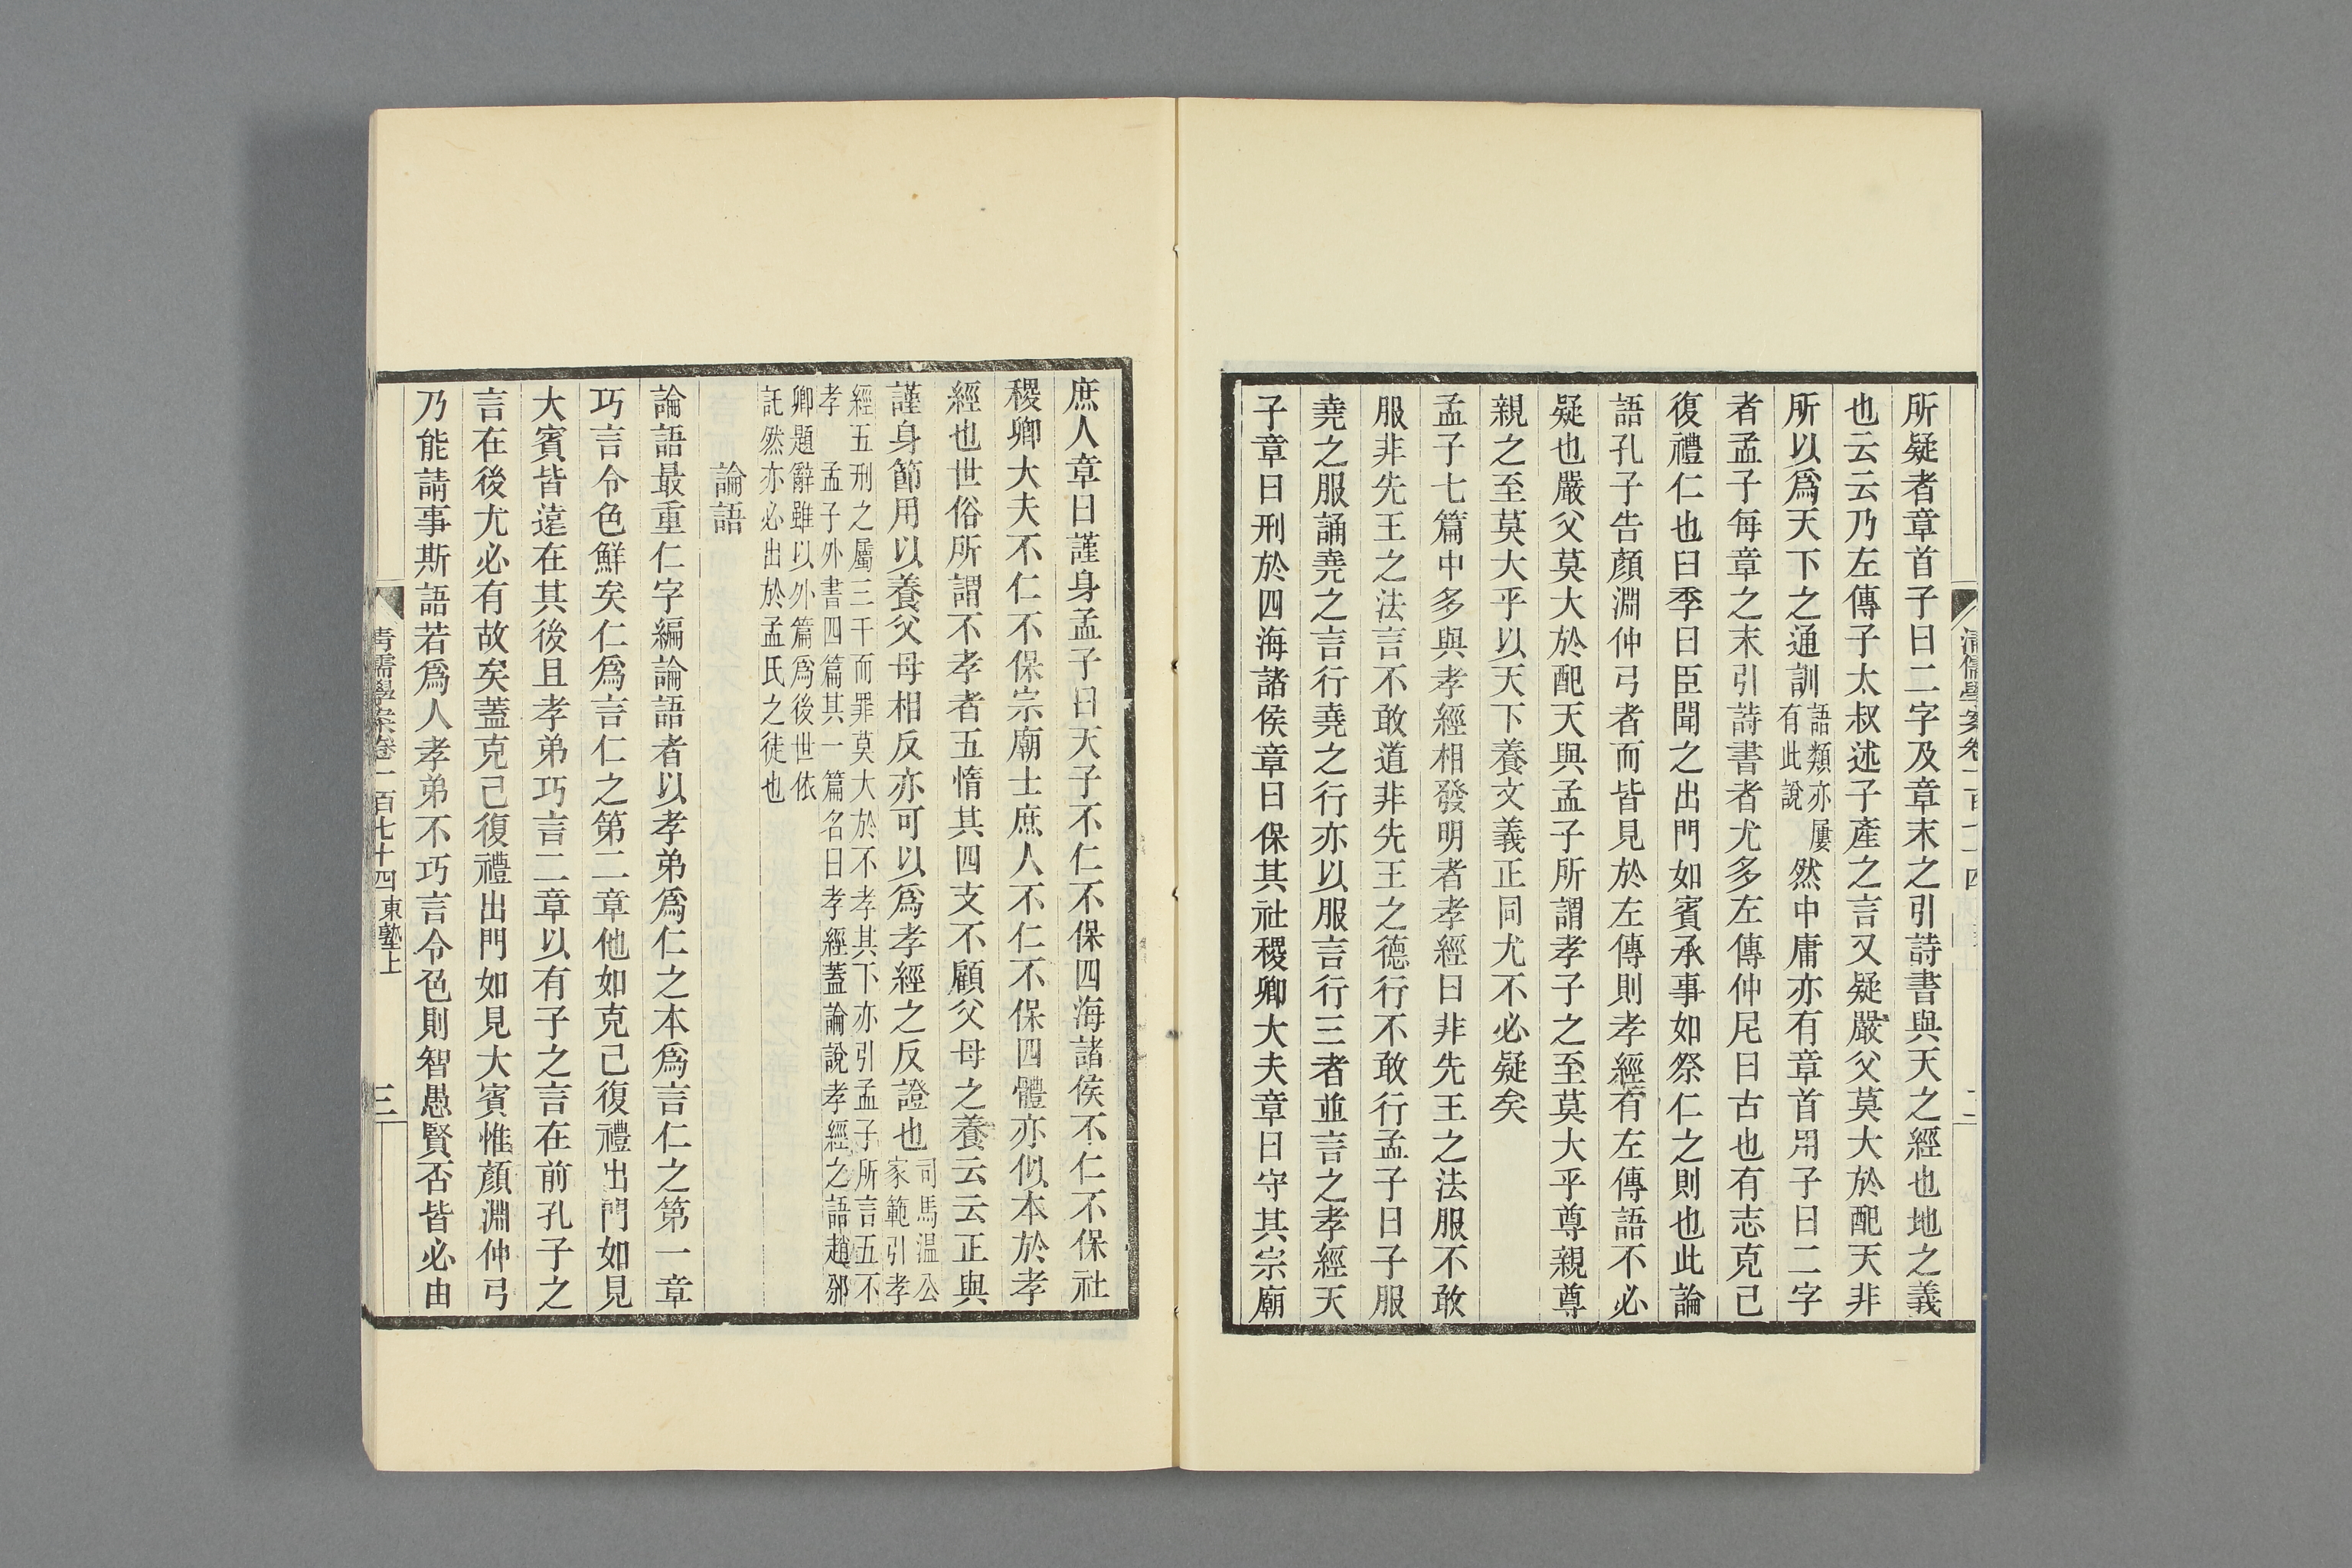 所疑者章首子曰二字及章末之引詩書與天之經也地之義
也云云乃左傳子太叔述子產之言又疑嚴父莫大於配天非
所以爲天下之通訓語類亦屢有此說然中庸亦有章首用子曰二字
者孟子每章之末引詩書者尤多左傳仲尼曰古也有志克己
復禮仁也曰季曰臣聞之出門如賓承事如祭仁之則也此論
語孔子告顏淵仲弓者而皆見於左傳則孝經有左傳語不必
疑也嚴父莫大於配天與孟子所謂孝子之至莫大乎尊親尊
親之至莫大乎以天下養文義正同尤不必疑矣
孟子七篇中多與孝經相發明者孝經曰非先王之法服不敢
服非先王之法言不敢道非先王之德行不敢行孟子曰子服
堯之服誦堯之言行堯之行亦以服言行三者並言之孝經天
子章曰刑於四海諸侯章曰保其社稷卿大夫章曰守其宗廟
庶人章曰謹身孟子曰天子不仁不保四海諸侯不仁不保社
稷卿大夫不仁不保宗廟士庶人不仁不保四體亦似本於孝
經也世俗所謂不孝者五惰其四支不顧父母之養云云正與
謹身節用以養父母相反亦可以爲孝經之反證也司馬温公家範引孝
經五刑之屬三千而罪莫大於不孝其下亦引孟子所言五不
孝 孟子外書四篇其一篇名曰孝經蓋論說孝經之語趙邠
卿題辭雖以外篇爲後世依
託然亦必出於孟氏之徒也
論語
論語最重仁字編論語者以孝弟爲仁之本爲言仁之第一章
巧言令色鮮矣仁爲言仁之第二章他如克己復禮出門如見
大賓皆遠在其後且孝弟巧言二章以有子之言在前孔子之
言在後尤必有故矣蓋克己復禮出門如見大賓惟顏淵仲弓
乃能請事斯語若爲人孝弟不巧言令色則智愚賢否皆必由
清儒學案卷一百七十四 東塾上
三